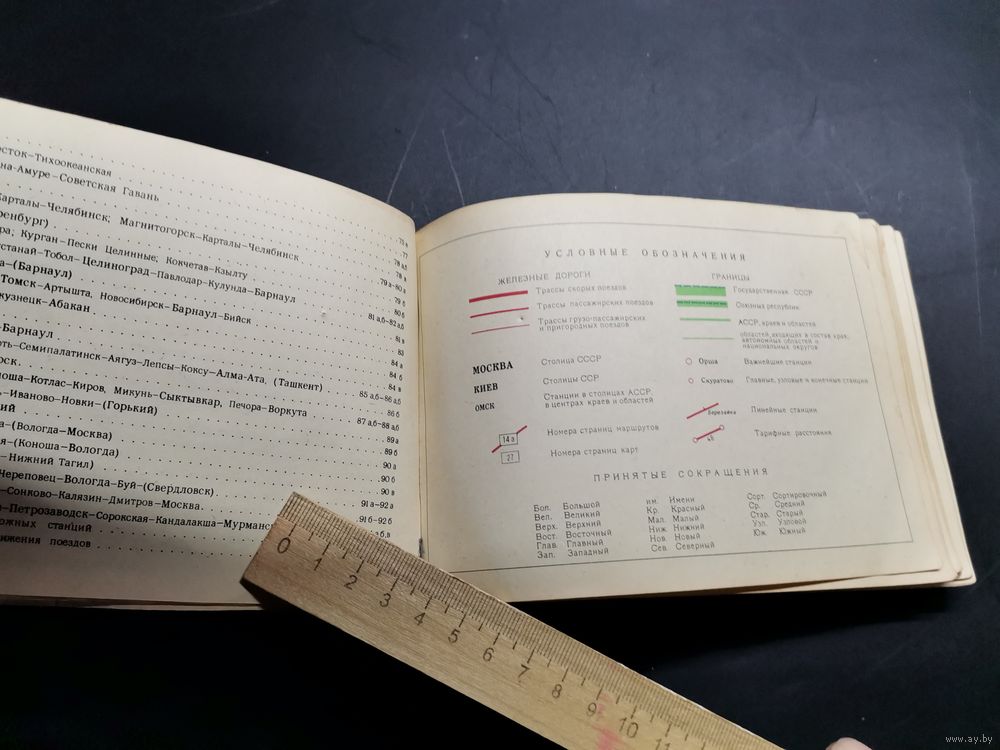 сток–Тихоокеанская
на-Амуре–Советская Гавань
Карталы–Челябинск; Магнитогорск–Карталы–Челябинск
ренбург)
ра; Курган–Пески Целинные; Кокчетав–Кзылту
станай–Тобол–Целиноград–Павлодар–Кулунда–Барнаул
а–(Барнаул)
Томск–Артышта, Новосибирск–Барнаул–Бийск
кузнецк–Абакан
77
78 а,б
78 в
79 а–80 а
79 б
80 б
81 а,б–82 а,б
81 в
83
Барнаул 84 а
ть–Семипалатинск–Аягуз–Лепсы–Коксу–Алма-Ата, (Ташкент) 84 б
рск. 84 в
ноша–Котлас–Киров, Микунь–Сыктывкар, Печора–Воркута 85 а,б–86 а,б
ь–Иваново–Новки–(Горький) 86 б
ий) 87 а,б–88 а,б
а–(Вологда–Москва) 89 а
я–(Коноша–Вологда) 89 б
–Нижний Тагил) 90 а
Череповец–Вологда–Буй–(Свердловск) 90 б
–Сонково–Калязин–Дмитров–Москва. 90 в
–Петрозаводск–Сорокская–Кандалакша–Мурманск 91 а–92 а
ожных станций 91 б–92 б
ижения поездов
УСЛОВНЫЕ ОБОЗНАЧЕНИЯ
ЖЕЛЕЗНЫЕ ДОРОГИ
Трассы скорых поездов
Трассы пассажирских поездов
Трассы грузо-пассажирских
и пригородных поездов
МОСКВА Столица СССР
КИЕВ Столицы ССР
ОМСК Станции в столицах АССР,
в центрах краев и областей
14 а Номера страниц маршрутов
27 Номера страниц карт
ГРАНИЦЫ
Государственная СССР
Союзных республик
АССР, краев и областей
областей, входящих в состав края,
автономных областей и
национальных округов
Орша Важнейшие станции
Скуратово Главные, узловые и конечные станции
Березайка Линейные станции
Тарифные расстояния
ПРИНЯТЫЕ СОКРАЩЕНИЯ
Бол. Большой
Вел. Великий
Верх. Верхний
Вост. Восточный
Глав. Главный
Зап. Западный
им. Имени
Кр. Красный
Мал. Малый
Ниж. Нижний
Нов. Новый
Сев. Северный
Сорт. Сортировочный
Ср. Средний
Стар. Старый
Узл. Узловой
Юж. Южный
0 1 2 3 4 5 6 7 8 9 10 11
www.ay.by